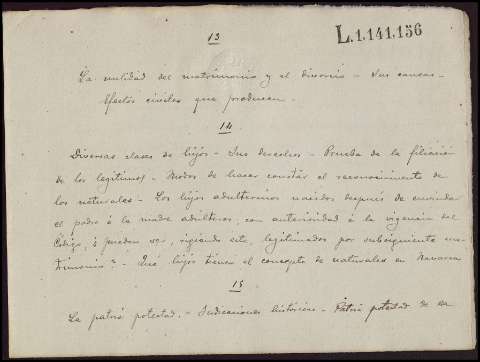 13
L.1,141,156
La nulidad del matrimonio y el divorcio - Sus causas -
Efectos civiles que producen.
14
Diversas clases de hijos - Sus derechos - Prueba de la filiación
de los legítimos - Modos de hacer constar el reconocimiento de
los naturales - Los hijos adulterinos nacidos después de enviudar
el padre ó la madre adúlteros, con anterioridad á la vigencia del
Código, ¿pueden ser, rigiendo este, legitimados por subsiguiente ma-
trimonio? - Qué hijos tienen el concepto de naturales en Navarra
15
La patria potestad. - Indicaciones históricas. - Patria potestad de la